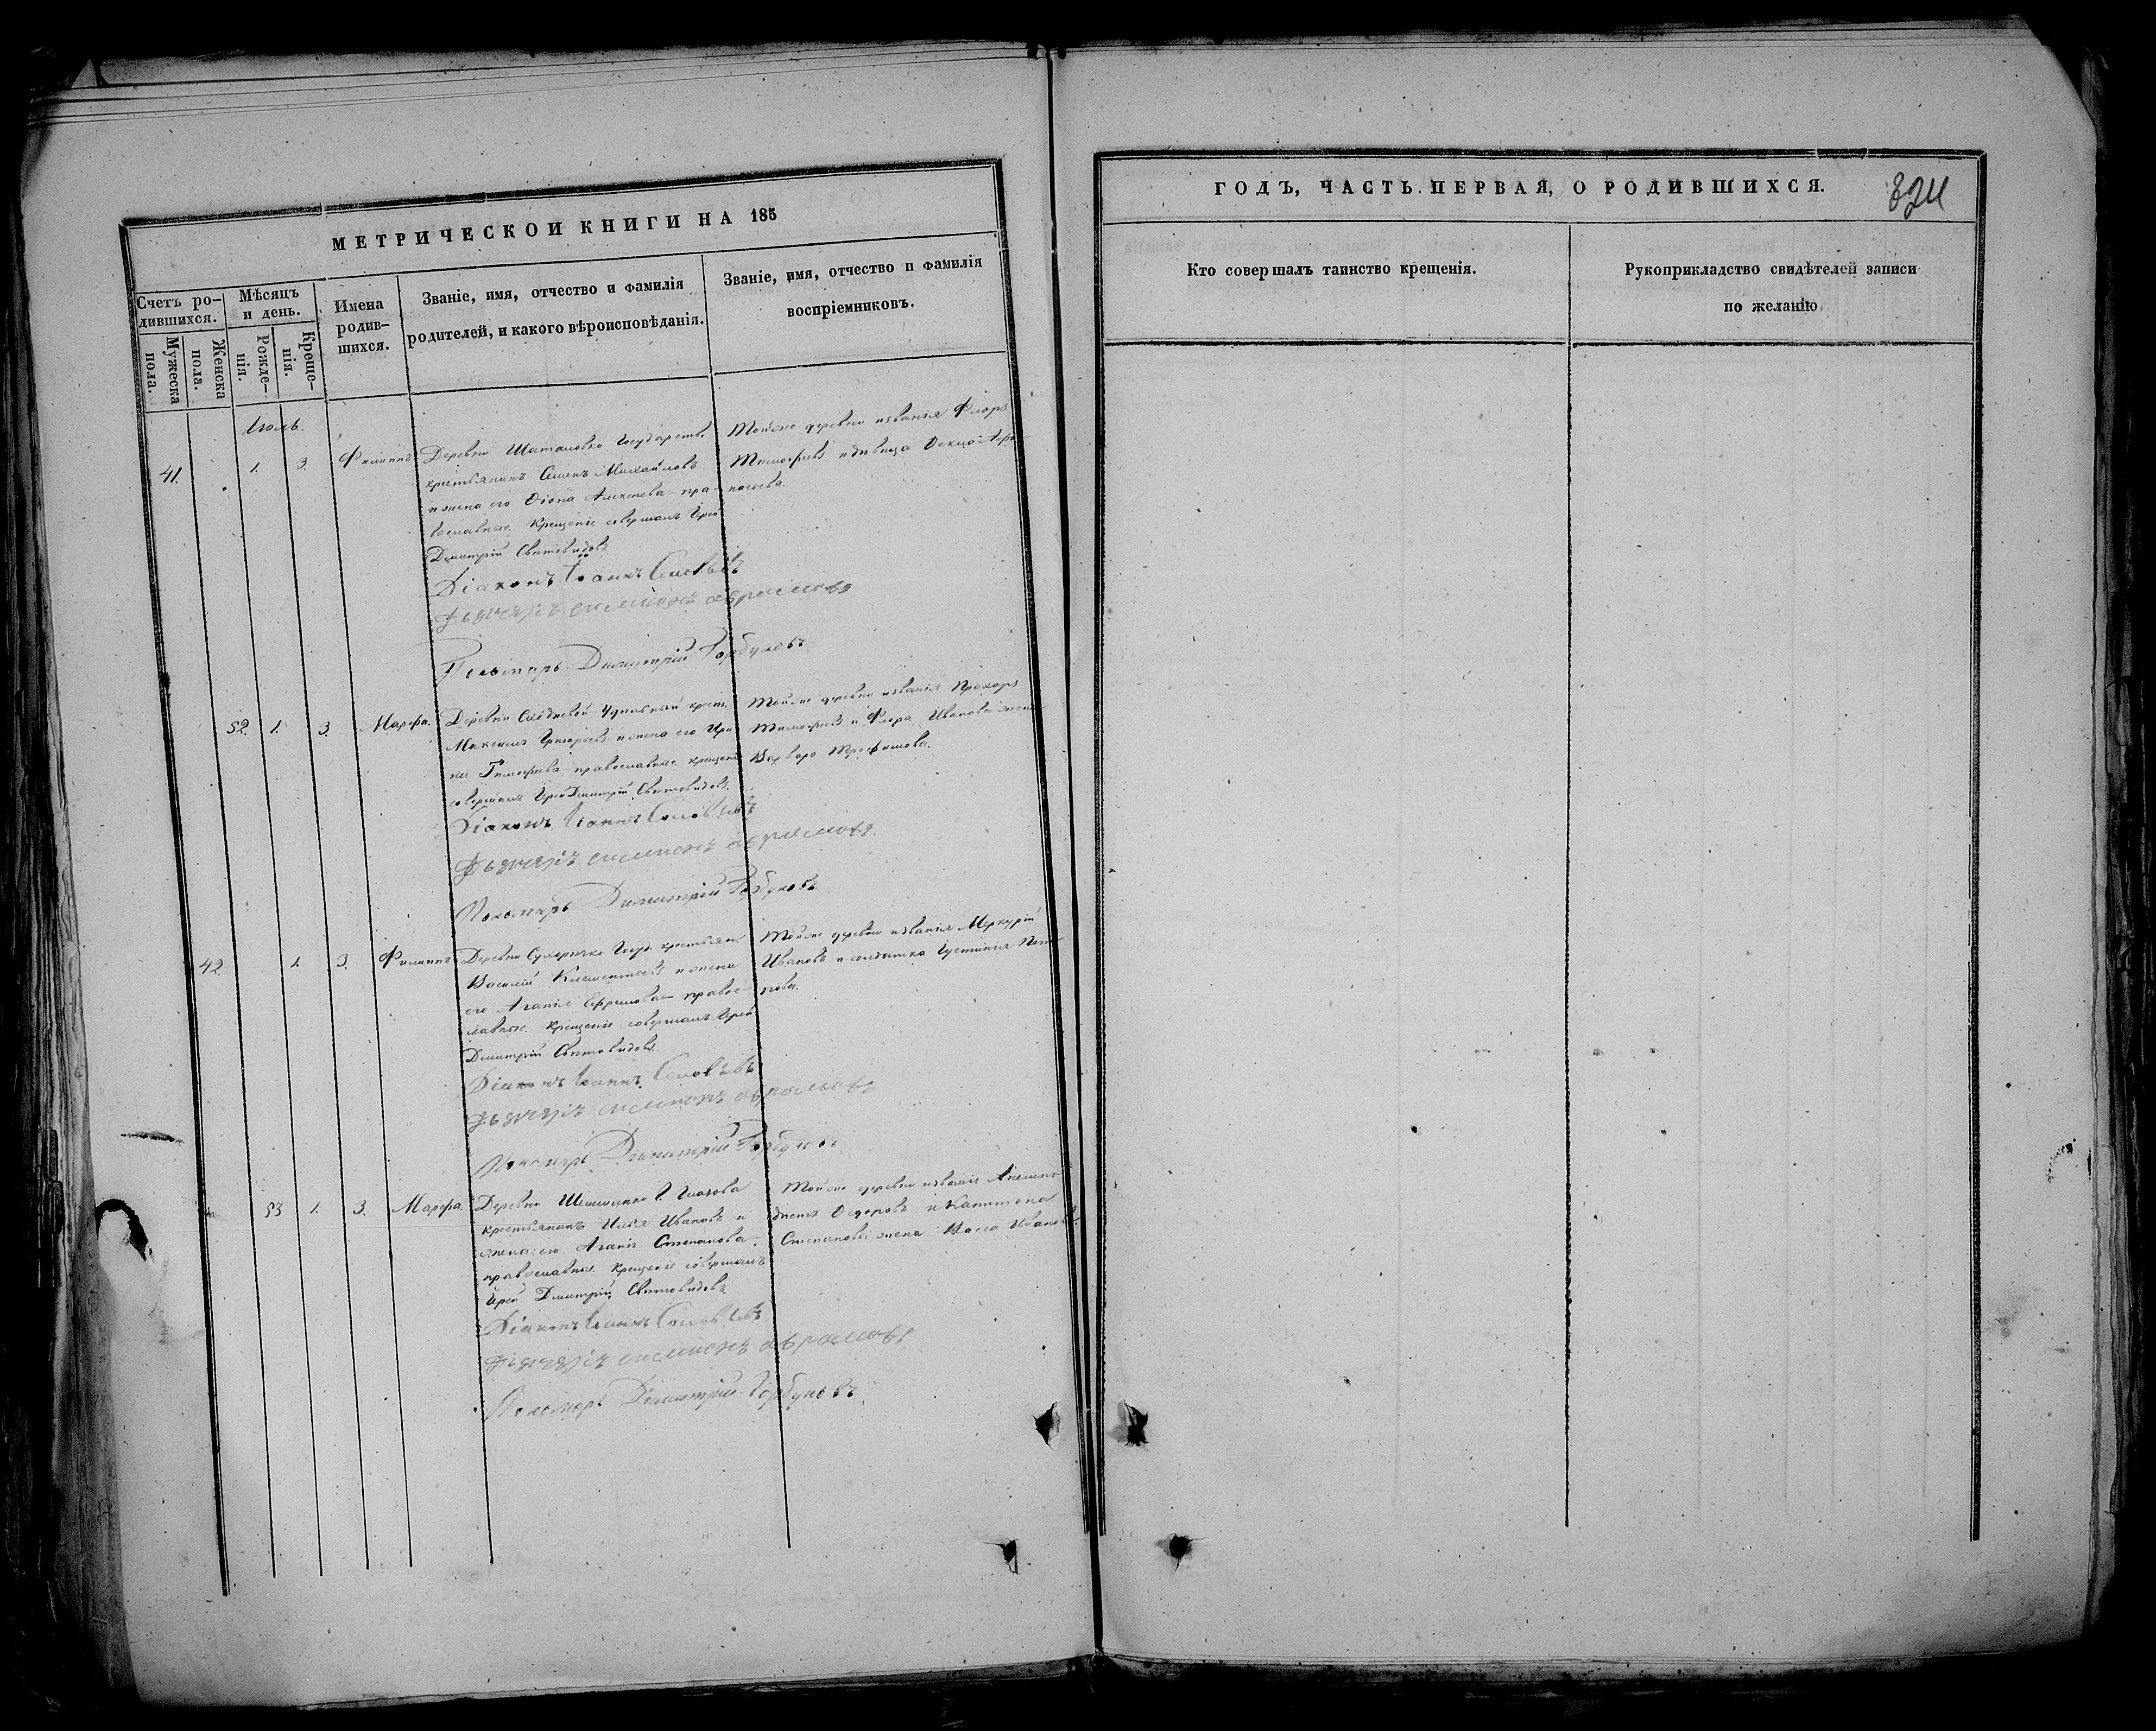 МЕТРИЧЕСКОЙ КНИГИ НА 185
Счетъ ро-
дившихся.
Мужеска
пола.
Женска
пола.
Мѣсяцъ
и день.
Рожде-
нія.
Креще-
нія.
Имена
родив-
шихся.
Званіе, имя, отчество и фамилія
родителей, и какого вѣроисповѣданія.
Званіе, имя, отчество и фамилія
воспріемниковъ.
Іюль.
41. 1. 3. Филиппъ
Деревни
крестьянинъ Семенъ Михайловъ
и жена его Алексѣева пра-
вославные. Крещеніе совершалъ Іерей
Дмитрій Святовидовъ
Діаконъ Іоаннъ Соловьевъ
Дьячекъ Симеонъ Абрамовъ
Пономарь Димитрій Горбуновъ
Тойже деревни и званія Флоръ
Тимофѣевъ и дѣвица
52. 1. 3. Марфа.
Деревни Удѣльный крест.
Максимъ Григорьевъ и жена его Ири
на Тимофѣева православные. крещеніе
совершалъ Іерей Дмитрій Святовидовъ
Діаконъ Іоаннъ Соловьевъ
Дьячекъ Симеонъ Абрамовъ
Пономарь Димитрій Горбуновъ
Тойже деревни и званія Прохоръ
Тимофѣевъ и Флора Иванова жена
Варвара Трофимова.
42. 1. 3. Филиппъ
Деревни Госуд. крестьян.
Василій Климентьевъ и жена
его Агапія Ефремова правос-
лавные. Крещеніе совершалъ Іерей
Дмитрій Святовидовъ
Діаконъ Іоаннъ Соловьевъ
Дьячекъ Симеонъ Абрамовъ
Пономарь Димитрій Горбуновъ
Тойже деревни и званія Меркурій
Ивановъ и солдатка Устинія
53 1. 3. Марфа.
Деревни
крестьянинъ Илья Ивановъ и
жена его Агапія Степанова
православные. Крещеніе совершалъ
Іерей Дмитрій Святовидовъ
Діаконъ Іоаннъ Соловьевъ
Дьячекъ Симеонъ Абрамовъ
Пономарь Димитрій Горбуновъ
Тойже деревни и званія
Федоровъ и Капитона
Степанова жена Васса
ГОДЪ, ЧАСТЬ ПЕРВАЯ, О РОДИВШИХСЯ.
824
Кто совершалъ таинство крещенія.
Рукоприкладство свидѣтелей записи
по желанію